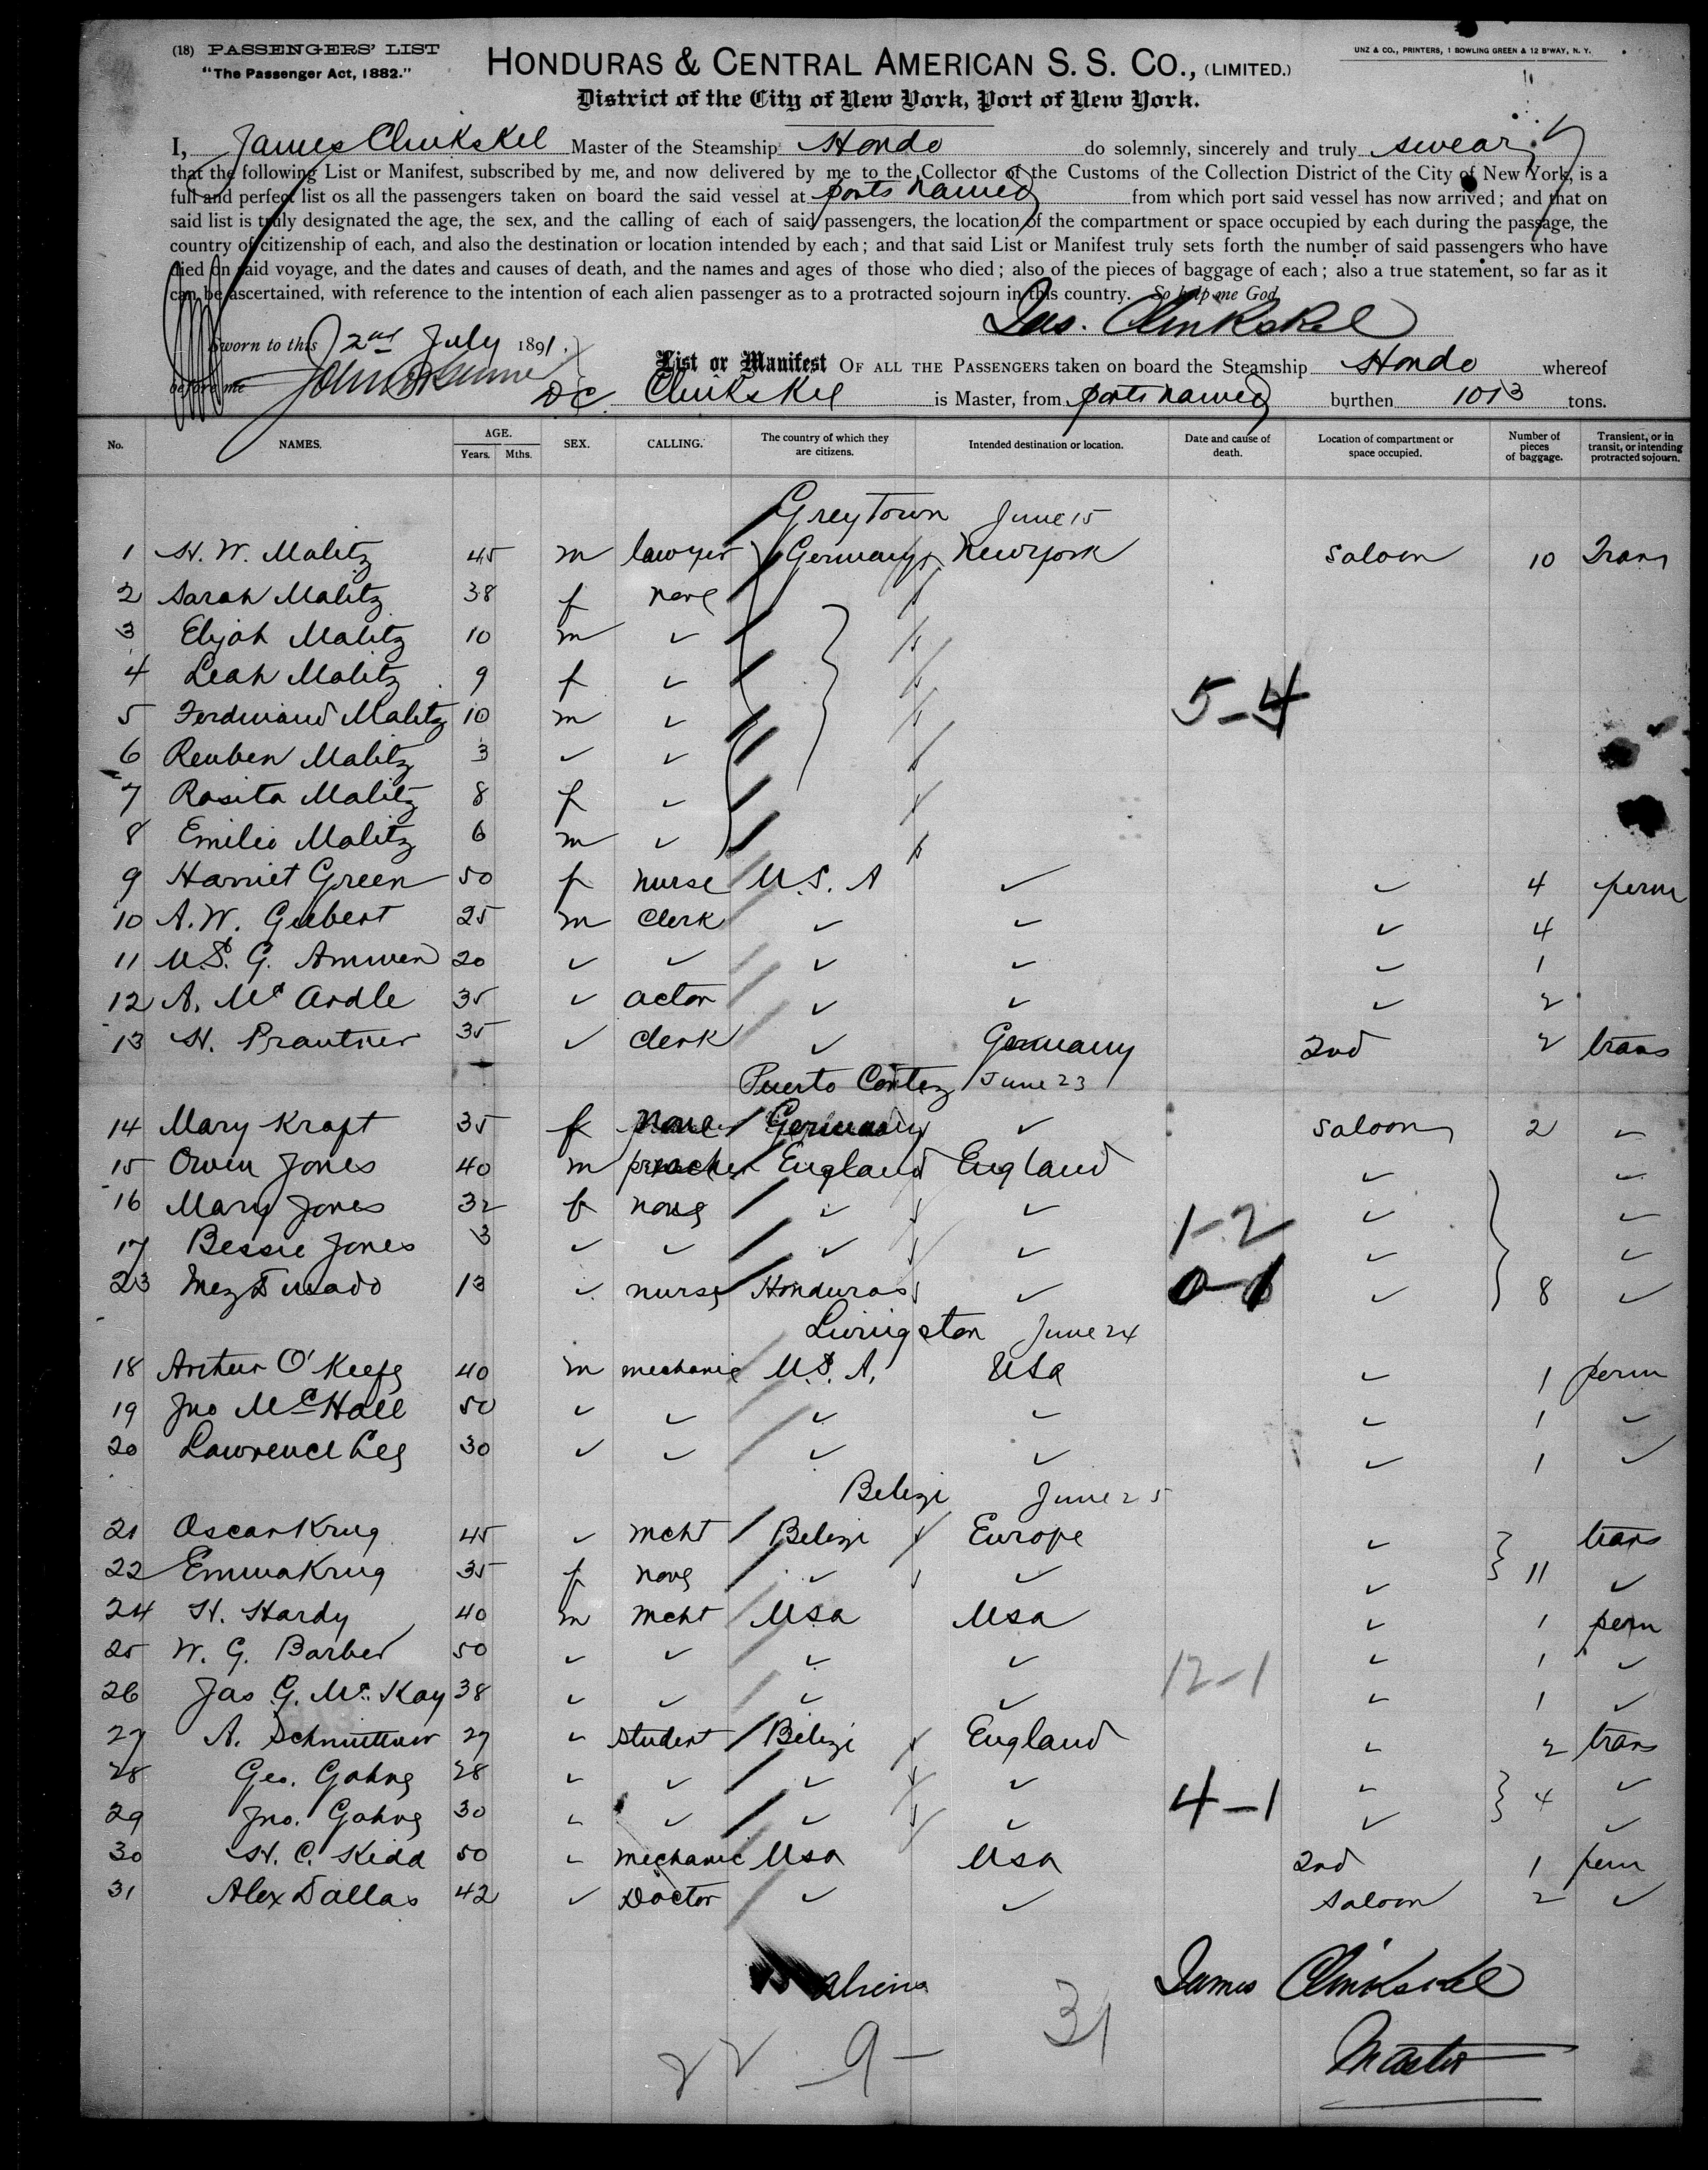 (18) PASSENGERS' LIST
"The Passenger Act, 1882."
HONDURAS & CENTRAL AMERICAN S. S. CO., (LIMITED.)
UNZ & CO., PRINTERS, 1 BOWLING GREEN & 12 B'WAY, N. Y.
District of the City of New York, Port of New York.
I, James Clinkskel Master of the Steamship Hondo do solemnly, sincerely and truly swear
that the following List or Manifest, subscribed by me, and now delivered by me to the Collector of the Customs of the Collection District of the City of New York, is a
full and perfect list os all the passengers taken on board the said vessel at ports named from which port said vessel has now arrived; and that on
said list is truly designated the age, the sex, and the calling of each of said passengers, the location of the compartment or space occupied by each during the passage, the
country of citizenship of each, and also the destination or location intended by each; and that said List or Manifest truly sets forth the number of said passengers who have
died on said voyage, and the dates and causes of death, and the names and ages of those who died; also of the pieces of baggage of each; also a true statement, so far as it
can be ascertained, with reference to the intention of each alien passenger as to a protracted sojourn in this country. So help me God
Jas. Clinkskel
Sworn to this 2nd July 1891.
before me
D.C.
List or Manifest OF ALL THE PASSENGERS taken on board the Steamship Hondo whereof
Clinkskel is Master, from ports named burthen 1013 tons.
No. NAMES. AGE. Years. Mths. SEX. CALLING. The country of which they are citizens. Intended destination or location. Date and cause of death. Location of compartment or space occupied. Number of pieces of baggage. Transient, or in transit, or intending protracted sojourn.
Greytown June 15
1 H. W. Malitz 45 m lawyer Germany New York Saloon 10 Trans
2 Sarah Malitz 38 f none
3 Elijah Malitz 10 m ✓
4 Leah Malitz 9 f ✓
5-4
5 Ferdinand Malitz 10 m ✓
6 Reuben Malitz 3 ✓ ✓
7 Rosita Malitz 8 f ✓
8 Emilio Malitz 6 m ✓
9 Harriet Green 50 f nurse U.S.A ✓ ✓ 4 perm
10 A. W. Gilbert 25 m Clerk ✓ ✓ ✓ 4
11 U.S. G. 20 ✓ ✓ ✓ ✓ ✓ 1
12 A. Mc Ardle 35 ✓ actor ✓ ✓ ✓ 2
13 H. Prautner 35 ✓ Clerk ✓ Germany 2nd 2 trans
Puerto Cortez June 23
14 Mary Kraft 35 f none Germany ✓ Saloon 2 ✓
15 Owen Jones 40 m preacher England England ✓ ✓
16 Mary Jones 32 f none ✓ ✓ ✓ ✓
1-2
17 Bessie Jones 3 ✓ ✓ ✓ ✓ ✓ ✓
23 13 ✓ nurse Honduras ✓ 0-1 ✓ 8 ✓
Livingston June 24
18 Arthur O'Keefe 40 m mechanic U.S.A. USA ✓ 1 perm
19 Jno McHall 50 ✓ ✓ ✓ ✓ ✓ 1 ✓
20 Lawrence Lee 30 ✓ ✓ ✓ ✓ ✓ 1 ✓
Belize June 25
21 Oscar Krug 45 ✓ mcht Belize Europe ✓ trans
22 Emma Krug 35 f none ✓ ✓ ✓ 11 ✓
24 H. Hardy 40 m mcht USA USA ✓ 1 perm
25 W. G. Barber 50 ✓ ✓ ✓ ✓ ✓ 1 ✓
12-1
26 Jas G. Mc Kay 38 ✓ ✓ ✓ ✓ ✓ 1 ✓
27 A. Schnittner 27 ✓ student Belize England ✓ 2 trans
28 Geo. Gahne 28 ✓ ✓ ✓ ✓ ✓ 4 ✓
4-1
29 Jno. Gahne 30 ✓ ✓ ✓ ✓ ✓ ✓
30 H. C. Kidd 50 ✓ mechanic USA USA 2nd 1 perm
31 Alex Dallas 42 ✓ Doctor ✓ ✓ Saloon 2 ✓
aliens
James Clinkskel
Master
22 9- 31